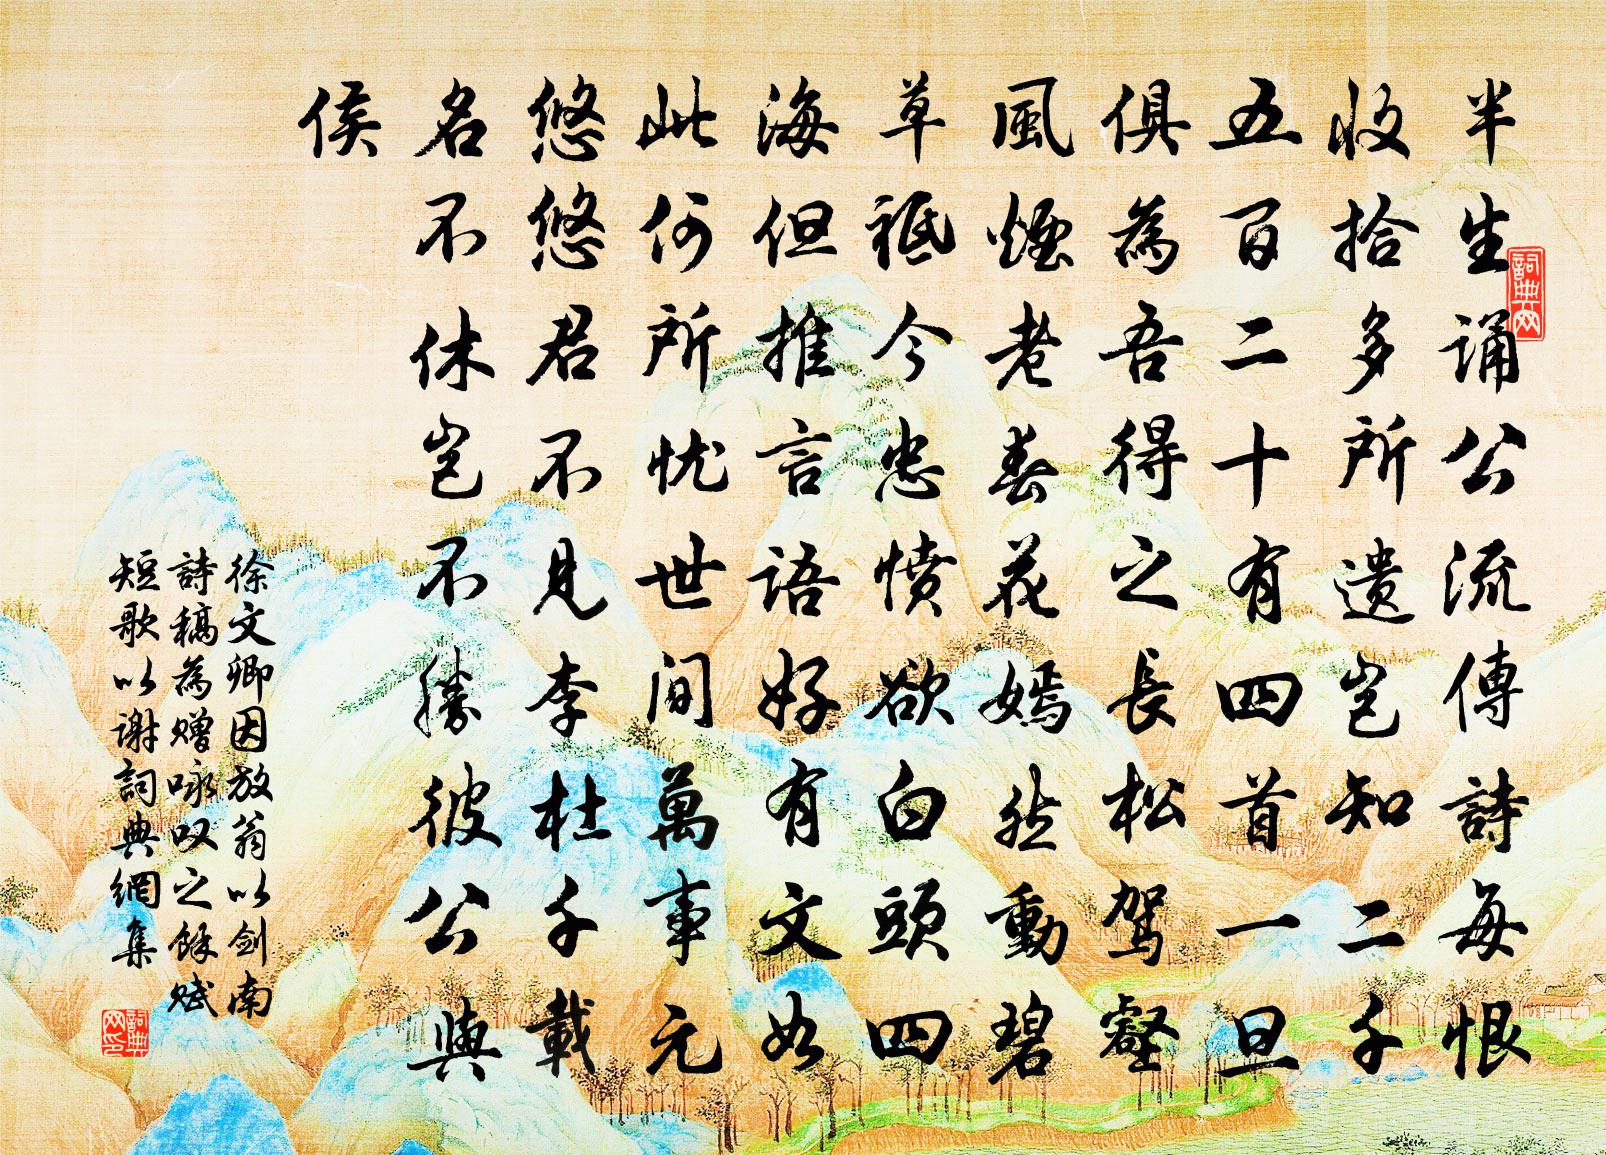 半生诵公流傳詩每恨
收拾多所遗豈知二千
五百二十有四首一旦
俱為吾得之長松駕壑
風煙老春花嫣然動碧
草祗今忠愤欲白頭四
海但推言語好有文如
此何所忧世間萬事元
悠悠君不見李杜千載
名不休豈不勝彼公與
侯
徐文卿因放翁以剑南
詩稿為赠咏叹之餘赋
短歌以谢詞典網集
詞典网
詞典网印